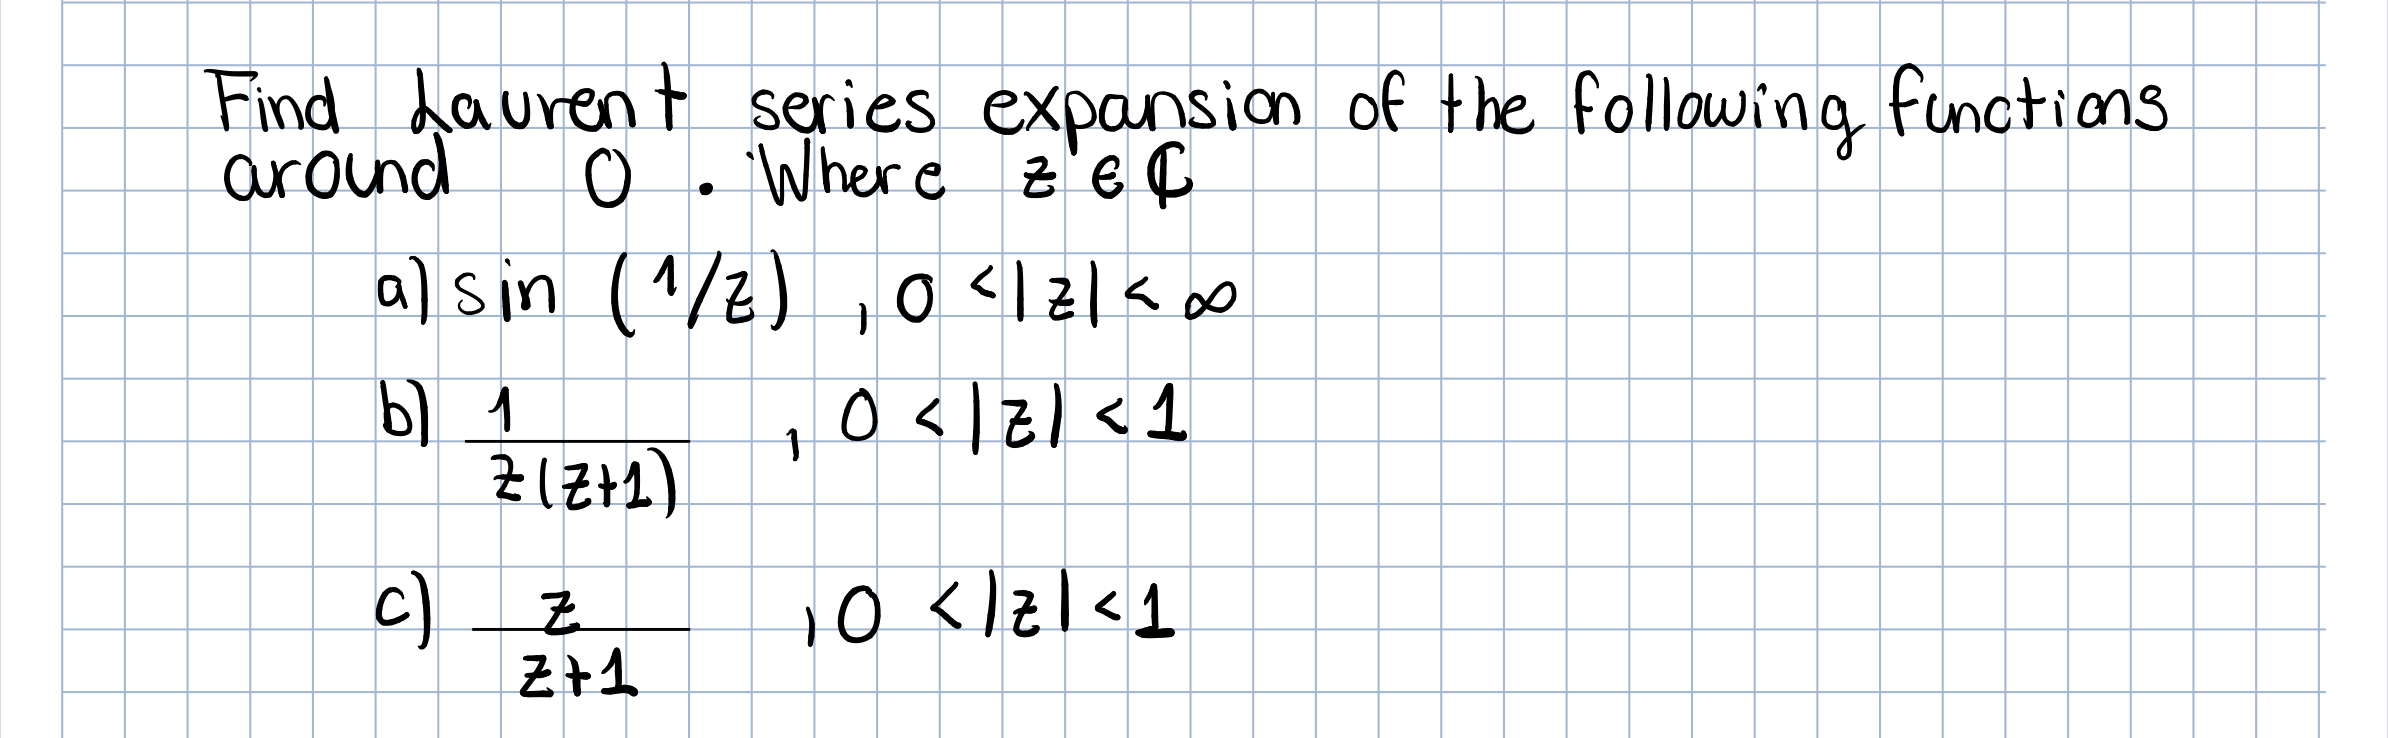 Find Laurent series expansion of the following functions
around 0 . Where z ∈ ℂ
a) sin (1/z) , 0 < |z| < ∞
b) 1/z(z+1) , 0 < |z| < 1
c) z/z+1 , 0 < |z| < 1